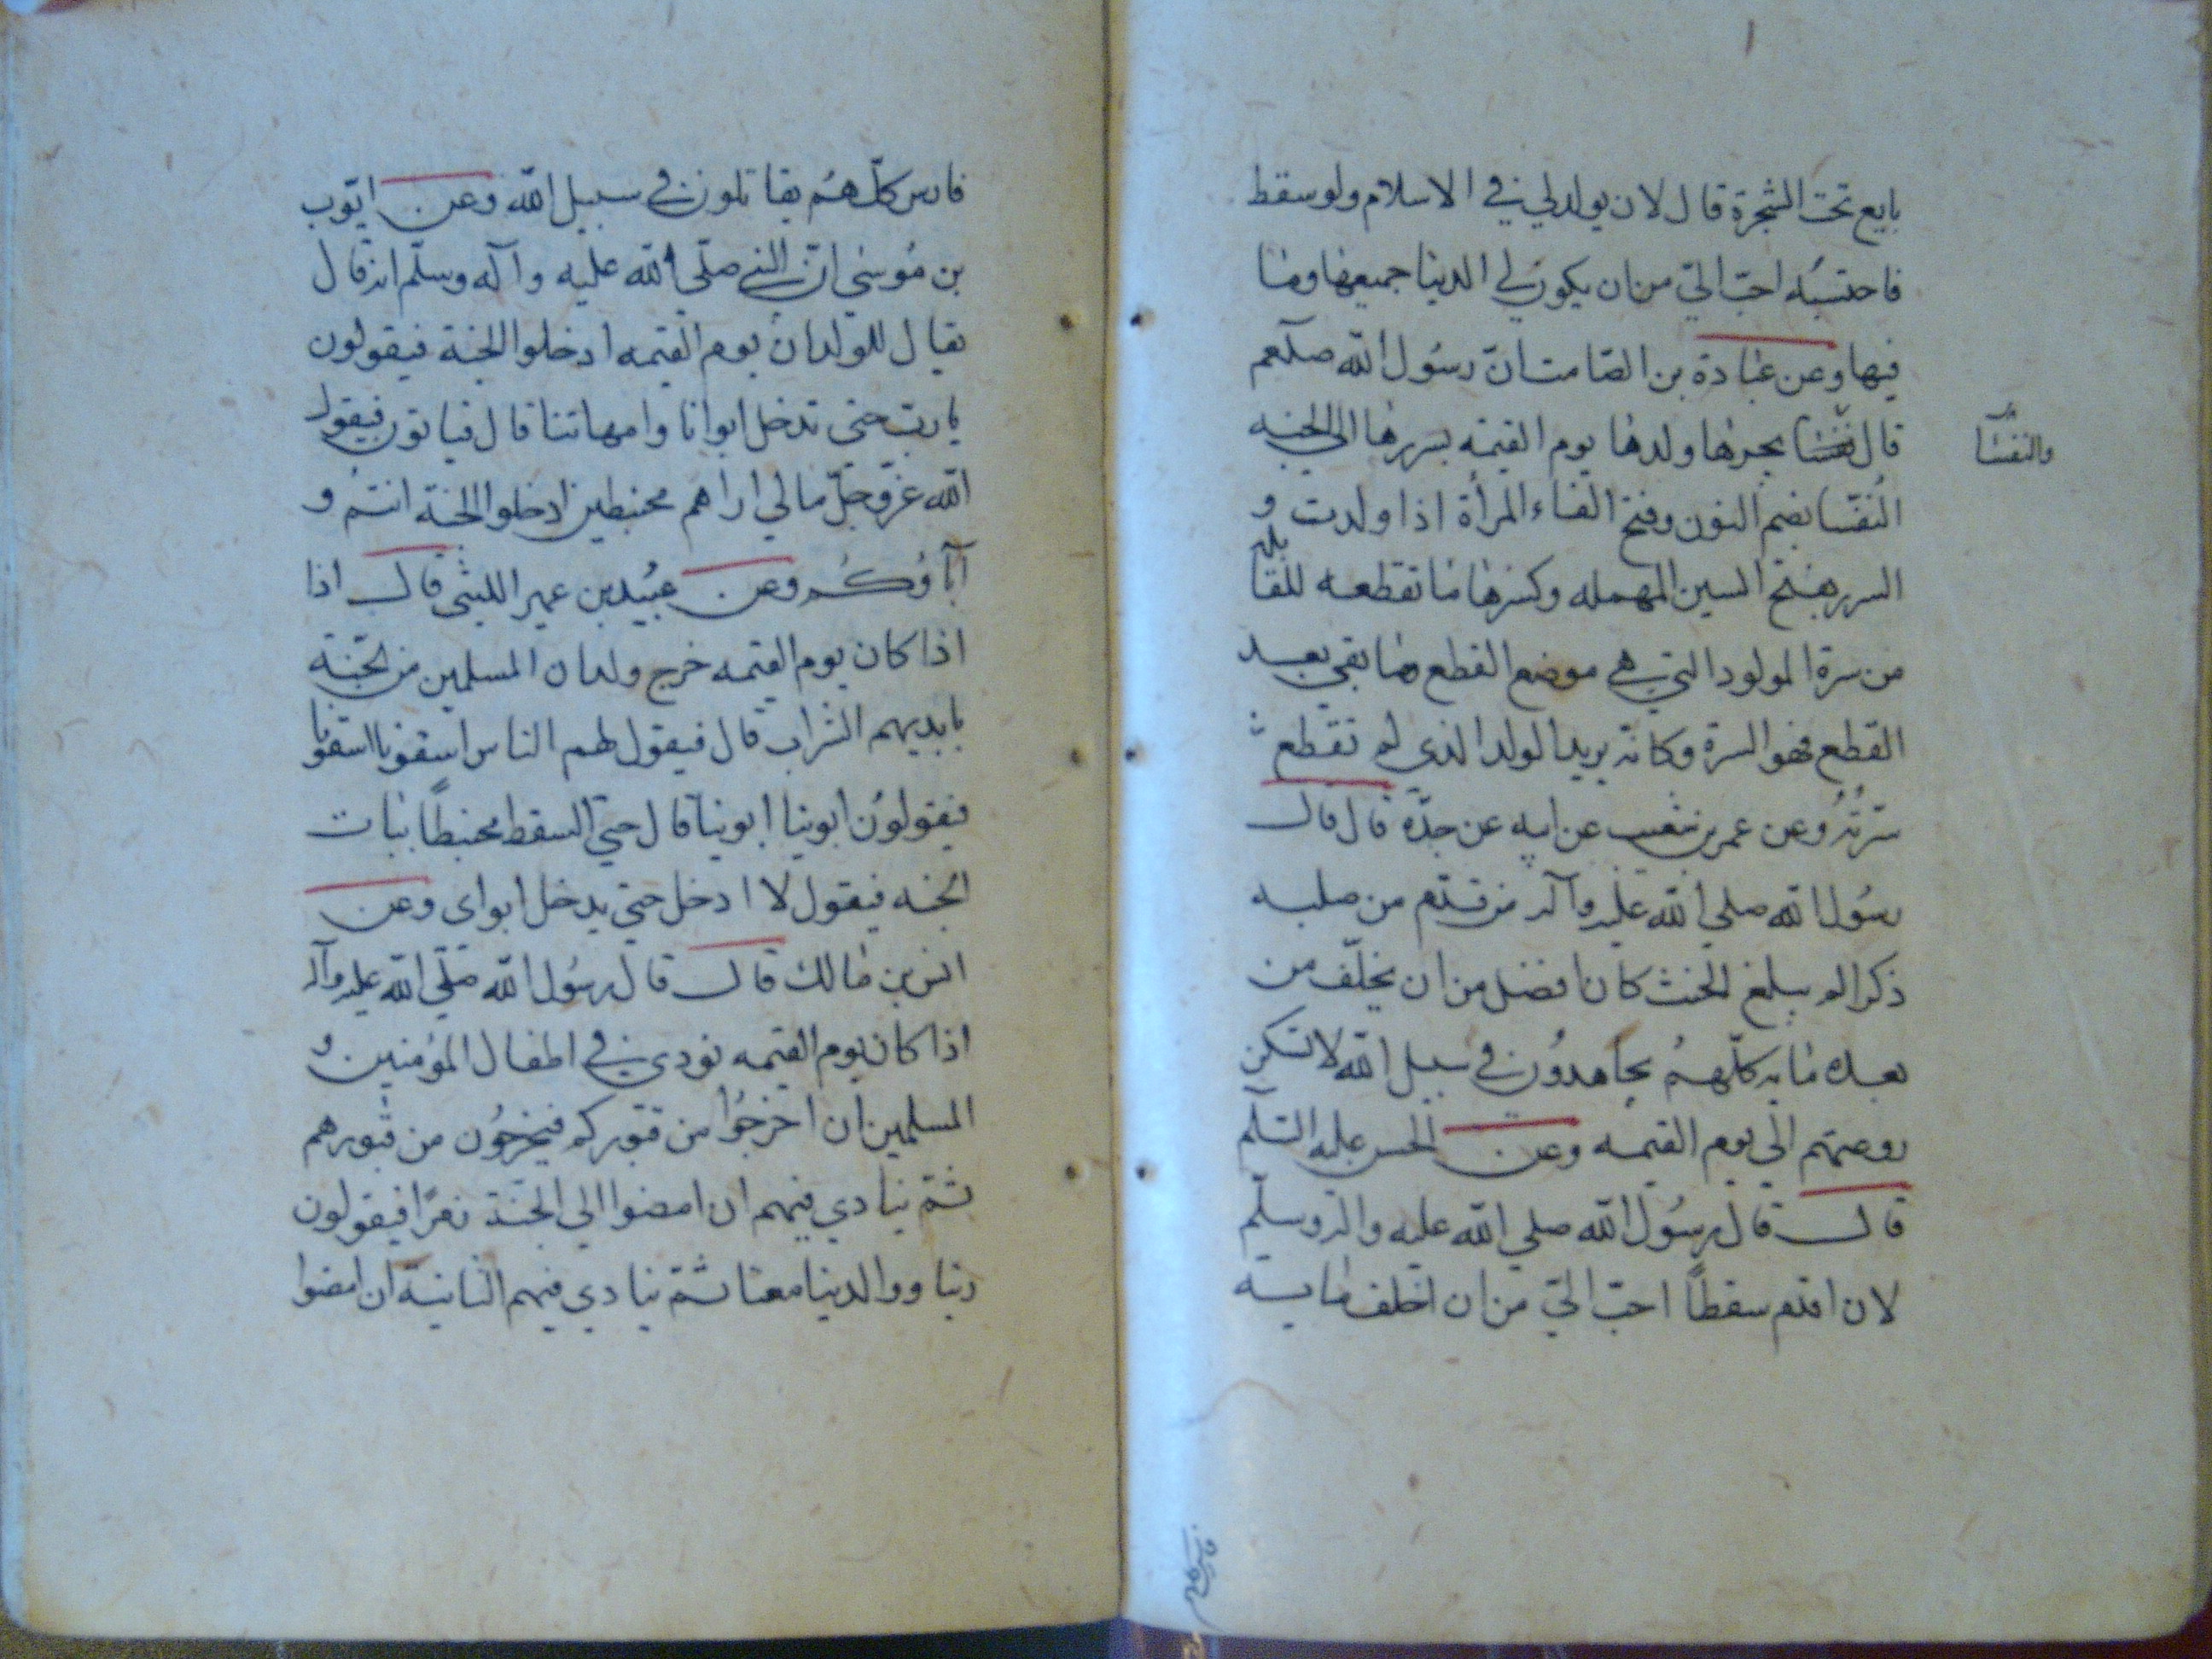 بايع تحت الشجرة قال لان يولد لي في الاسلام ولو سقط
فاحتسبه احبّ اليّ من ان يكون لي الدنيا جميعها وما
فيها وعن عبادة بن الصامت انّ رسول الله صلعم
قال النفسا يجرها ولدها يوم القيمه بسررها الى الجنه
والنفسا
النُفَسا بضم النون وفتح الفاء المرأة اذا ولدت و
السرر بفتح السين المهمله وكسرها ما تقطعه القابله
من سرة المولود التي هي موضع القطع وما بقي بعد
القطع فهو السرة وكانه يريد الولد الذي لم تقطع
سرّته وعن عمر بن شعيب عن ابيه عن جدّه قال قال
رسُول الله صلي الله عليه وآله من قدّم من صلبه
ذكرا لم يبلغ الحنث كان افضل من ان يخلّف من
بعده مايه كلّهم يجاهدُون في سبيل الله لا تسكن
روعتهم الي يوم القيمه وعن الحسن عليه السّلم
قال قال رسُول الله صلي الله عليه واله وسلّم
لان اقدّم سقطاً احبّ اليّ من ان اخلف مايه
فارس كلّهم يقاتلون في سبيل الله وعن ايّوب
بن مُوسي انّ النبي صلّي الله عليه وآله وسلّم انه قال
يقال للولدان يوم القيمه ادخلوا الجنة فيقولون
يا ربّ حتى تدخل ابوانا وامهاتنا قال فياتون فيقول
الله عزّ وجلّ ما لي اراهم محنبطين ادخلوا الجنة انتم و
آباؤكُم وعن عبُيد بن عمير الليثي قال اذا
اذا كان يوم القيمه خرج ولدان المسلمين من الجنّة
بايديهم الشراب قال فيقول لهم الناس اسقونا اسقونا
فيقولوُن ابوينا ابوينا قال حتي السقط محبنطاً بباب
الجنه فيقول لا ادخل حتي يدخل ابواي وعن
انس بن مالك قال قال رسُول الله صلّي الله عليه وآله
اذا كان يوم القيمه نودي في اطفال المؤمنين و
المسلمين ان اخرجُوا من قبوركم فيخرجُون من قبورهم
ثمّ ينادي فيهم ان امضوا الي الجنّة زمرًا فيقولون
ربنا ووالدينا معنا ثمّ ينادي فيهم الثانية ان امضوا